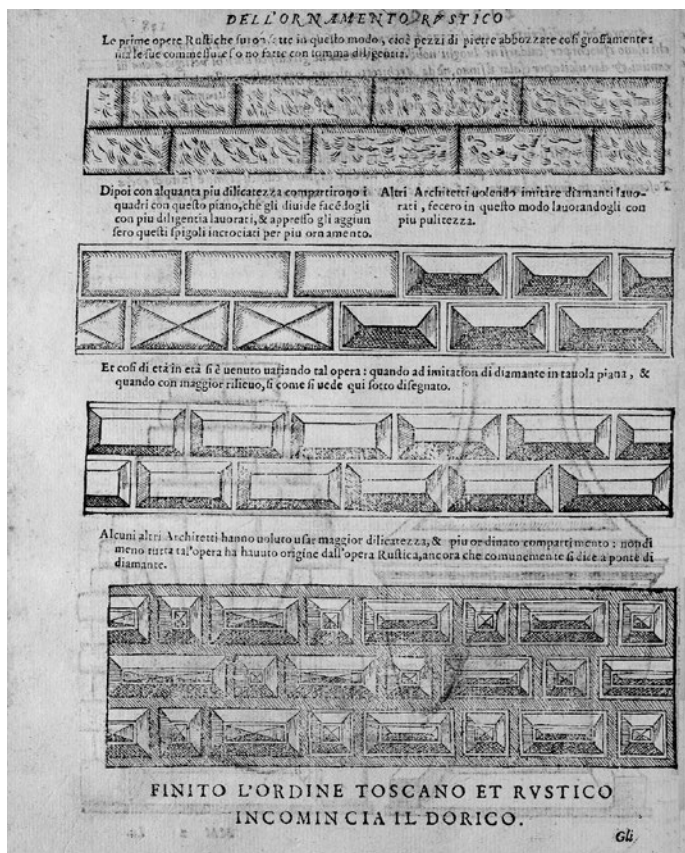 DELL'ORNAMENTO RVSTICO
Le prime opere Rustiche furono fatte in questo modo, cioè pezzi di pietre abbozzate cosi grossamente:
ma le sue commessure sono fatte con somma diligentia.
Dipoi con alquanta piu dilicatezza compartirono i
quadri con questo piano, che gli diuide facēdogli
con piu diligentia lauorati, & appresso gli aggiun
sero questi spigoli incrociati per piu ornamento.
Altri Architetti uolendo imitare diamanti lauo-
rati, fecero in questo modo lauorandogli con
piu pulitezza.
Et cosi di età in età si è uenuto uariando tal opera: quando ad imitation di diamante in tauola piana, &
quando con maggior rilieuo, si come si uede qui sotto disegnato.
Alcuni altri Architetti hanno uoluto usar maggior dilicatezza, & piu ordinato compartimento: nondi
meno tutta tal'opera ha hauuto origine dall'opera Rustica, ancora che comunemente si dice a ponte di
diamante.
FINITO L'ORDINE TOSCANO ET RVSTICO
INCOMINCIA IL DORICO.
Gli